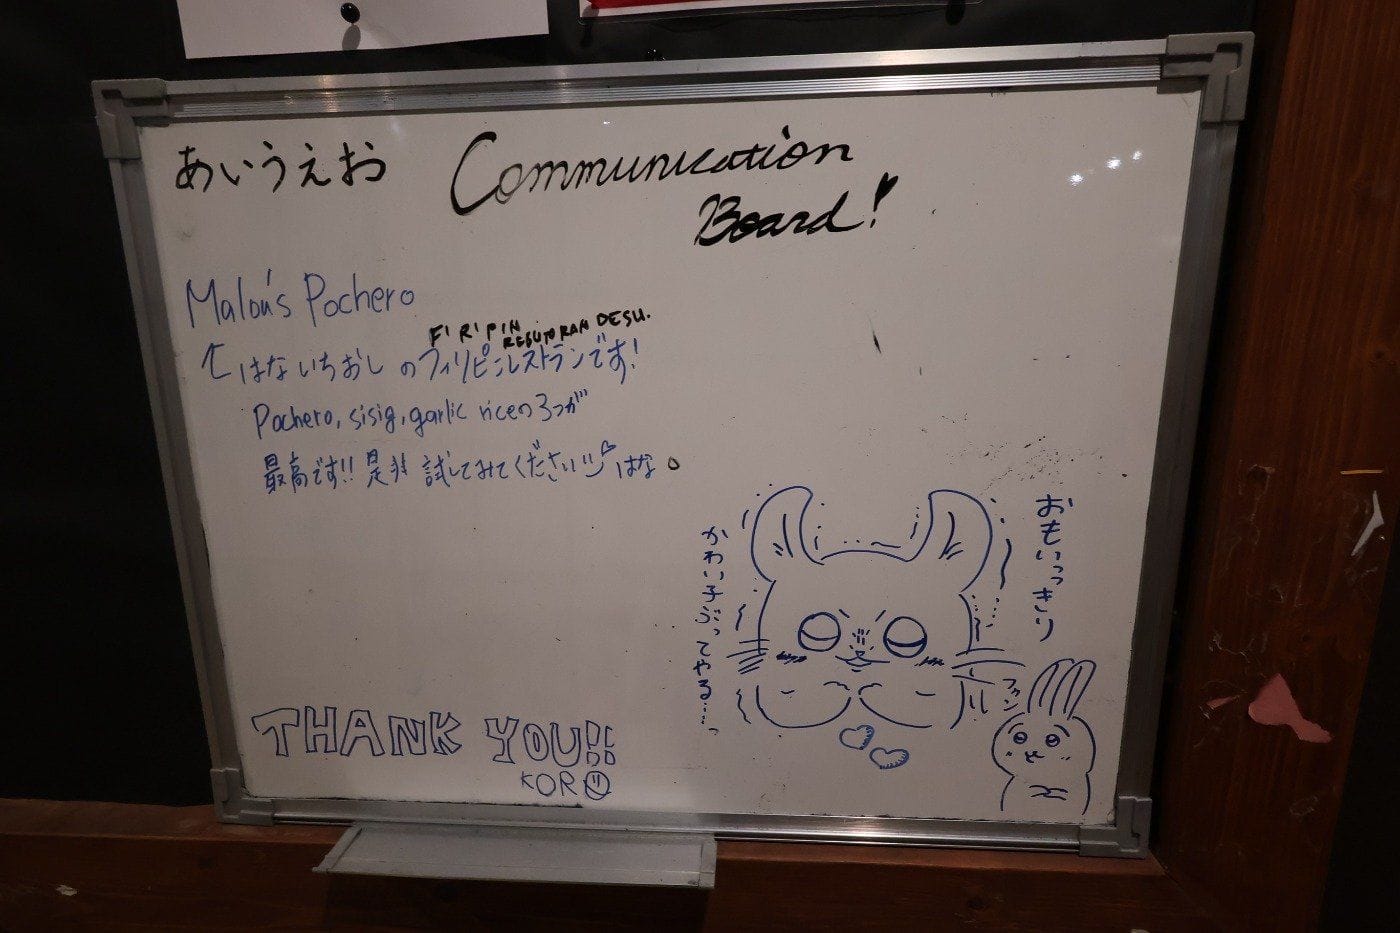 あいうえお
Communication
Board!
Malou's Pochero
FIRIPIN
RESUTORAN DESU.
↑はないちおしのフィリピンレストランです!
Pochero, sisig, garlic riceの3つが
最高です!! 是非試してみてください はな。
おもいっきり
かわい子ぶってやる……っ
THANK YOU!!
KORO